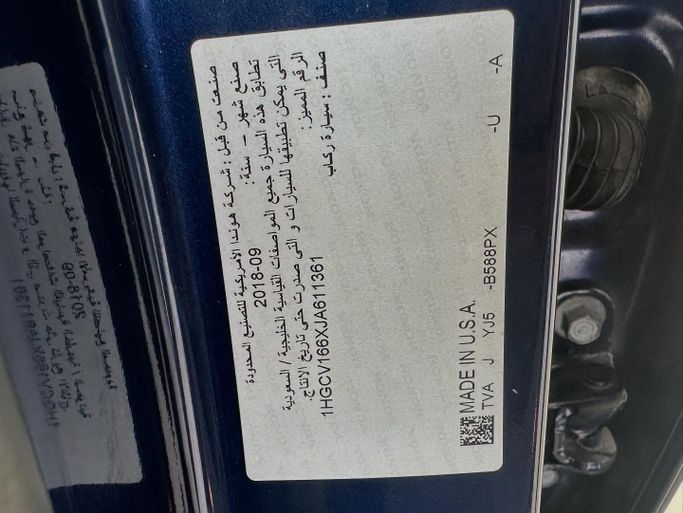 صنعت من قبل : شركة هوندا الأمريكية للتصنيع المحدودة
صنع شهر - سنة : 2018-09
تطابق هذه السيارة جميع المواصفات القياسية الخليجية / السعودية
التي يمكن تطبيقها للسيارات و التى صدرت حتى تاريخ الانتاج.
الرقم المميز : 1HGCV166XJA611361
صنف : سيارة ركاب
MADE IN U.S.A.
TVA J YJ5 -B588PX -U -A